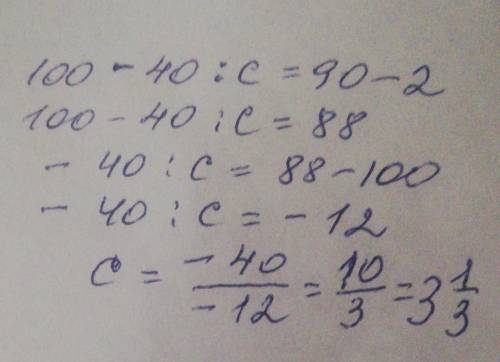 100 - 40 : c = 90 - 2
100 - 40 : c = 88
- 40 : c = 88 - 100
- 40 : c = - 12
c = \frac{-40}{-12} = \frac{10}{3} = 3\frac{1}{3}